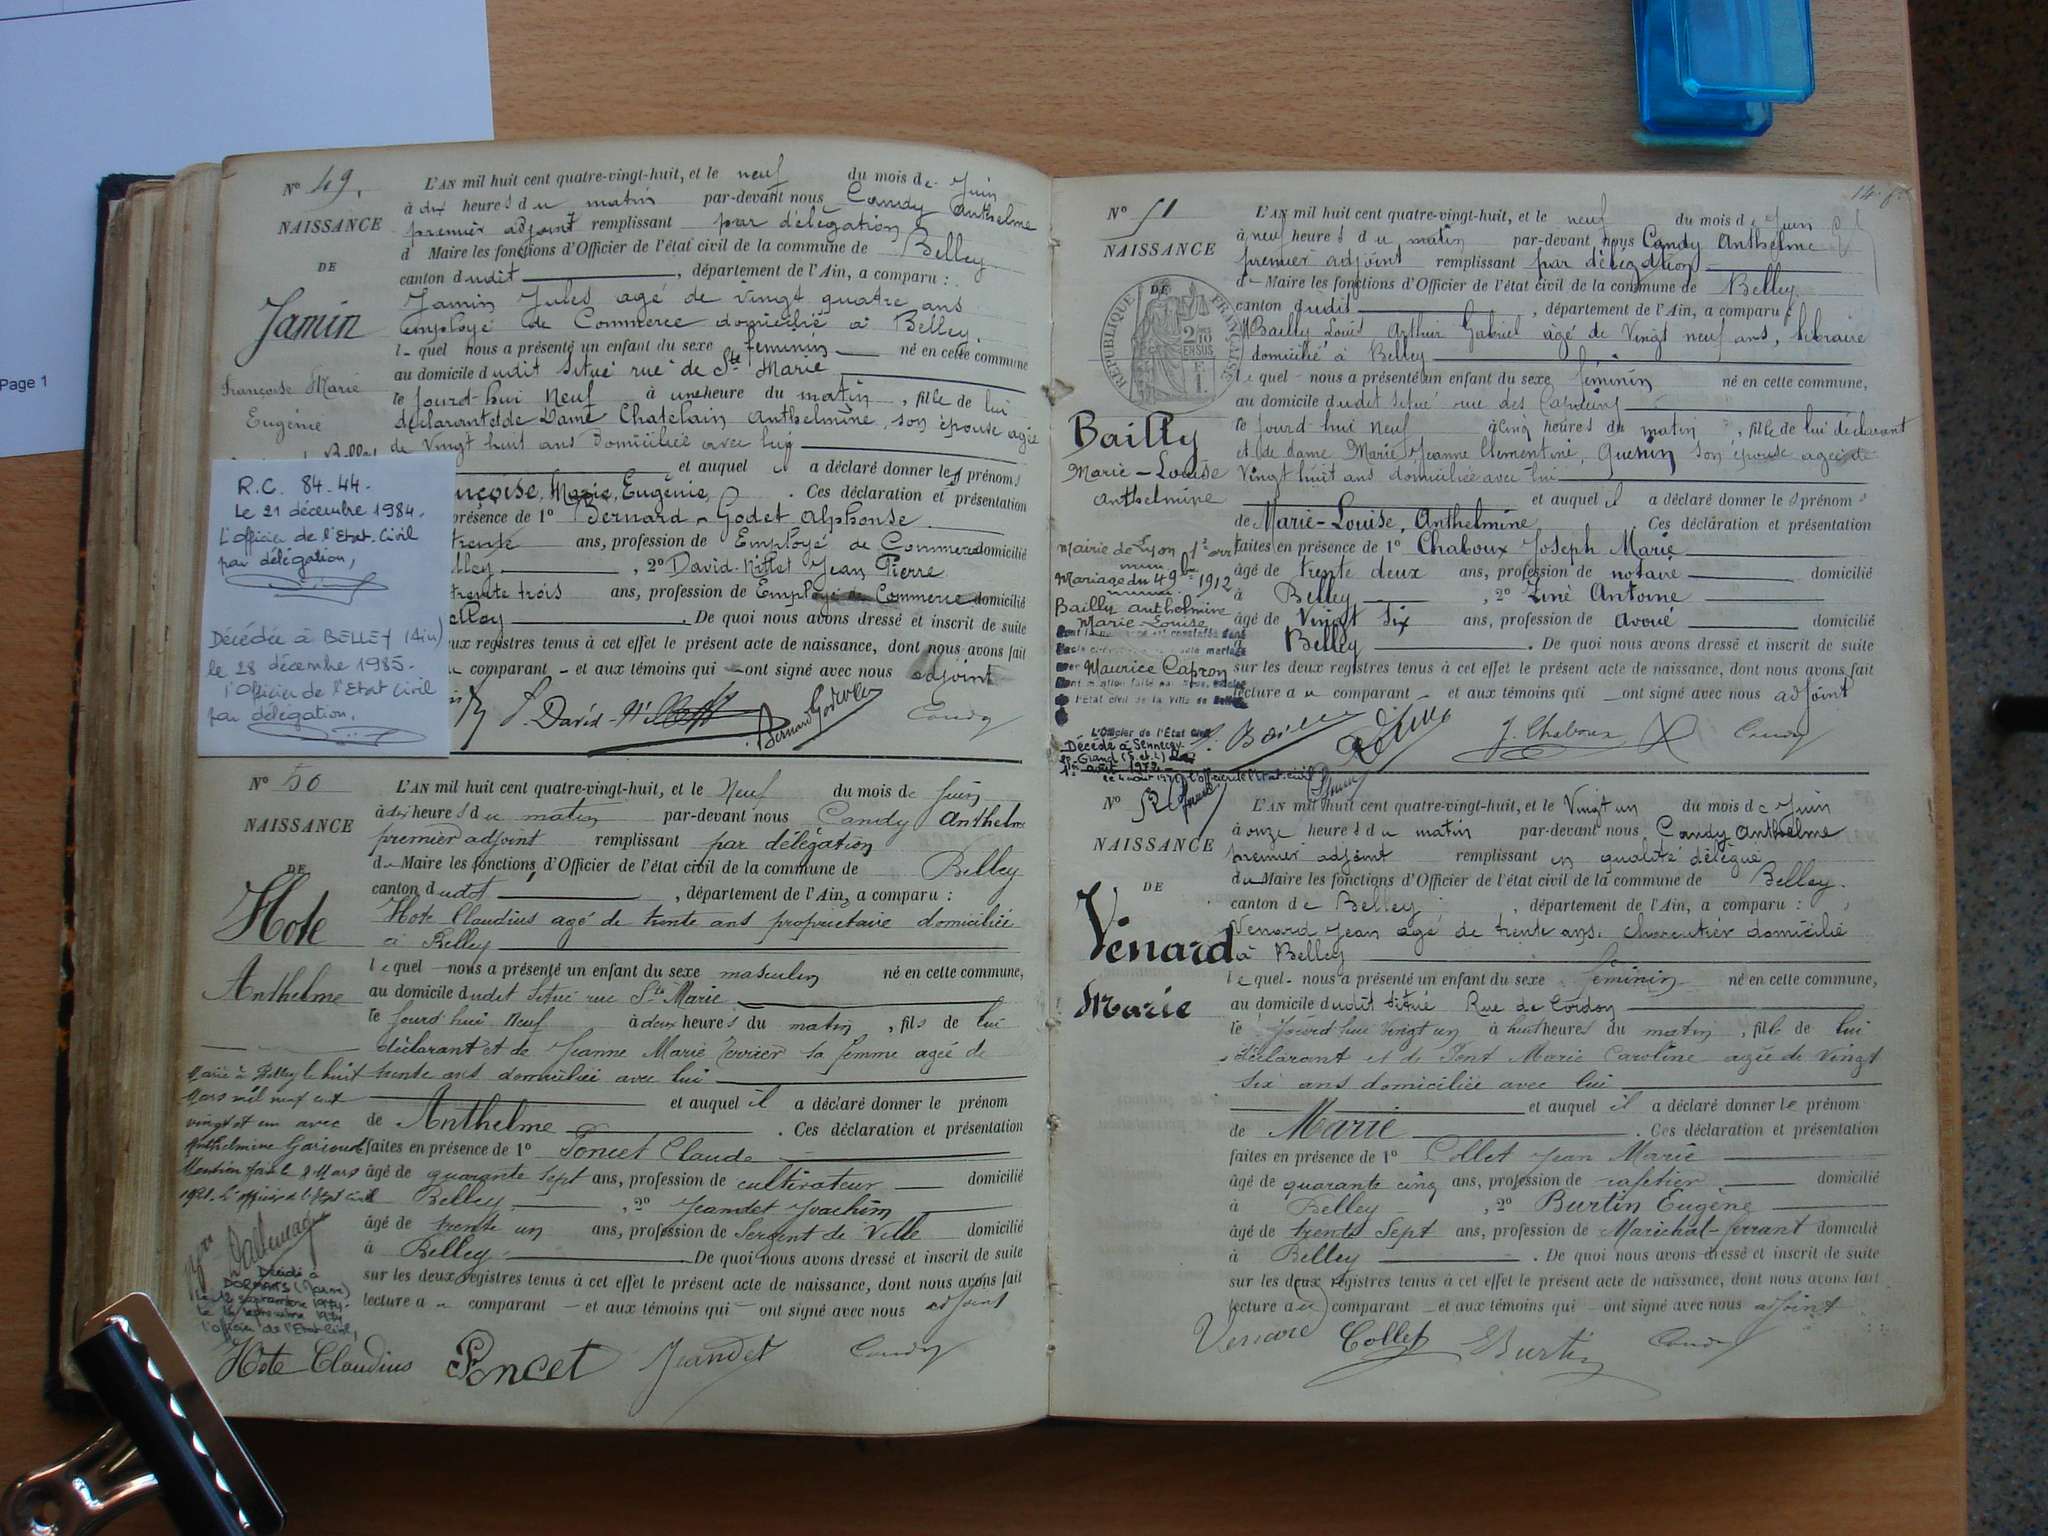 Page 1
N° 49.
NAISSANCE
DE
Jamin
Françoise Marie
Eugénie
L'AN mil huit cent quatre-vingt-huit, et le neuf du mois de Juin
à dix heures du matin par-devant nous Candy Anthelme
premier adjoint remplissant par délégation
d Maire les fonctions d'Officier de l'état civil de la commune de Belley
canton dudit, département de l'Ain, a comparu :
Jamin Jules agé de vingt quatre ans
employé de Commerce domicilié à Belley
lequel nous a présenté un enfant du sexe féminin né en cette commune
au domicile dudit situé rue de Ste Marie
le jourd'hui neuf à une heure du matin, fille de lui
déclarant et de Dame Chatelain Anthelmine son épouse agée
de vingt huit ans domiciliée avec lui
et auquel il a déclaré donner les prénoms
Françoise, Marie, Eugénie. Ces déclaration et présentation
présence de 1° Bernard-Godet Alphonse
trente ans, profession de Employé de Commerce domicilié
Belley, 2° David-Nillet Jean Pierre
trente trois ans, profession de Employé de Commerce domicilié
Belley. De quoi nous avons dressé et inscrit de suite
deux registres tenus à cet effet le présent acte de naissance, dont nous avons fait
comparant et aux témoins qui ont signé avec nous adjoint
R.C. 84.44.
Le 21 décembre 1984.
L'officier de l'Etat-Civil
par délégation,
Décédée à BELLEY (Ain)
le 28 décembre 1985.
l'Officier de l'Etat Civil
par délégation.
Bernard Godet Candy
N° 50
NAISSANCE
DE
Hote
Anthelme
L'AN mil huit cent quatre-vingt-huit, et le Neuf du mois de Juin
à dix heures du matin par-devant nous Candy Anthelme
premier adjoint remplissant par délégation
du Maire les fonctions d'Officier de l'état civil de la commune de Belley
canton dudit, département de l'Ain, a comparu :
Hote Claudius agé de trente ans propriétaire domicilié
à Belley
lequel nous a présenté un enfant du sexe masculin né en cette commune,
au domicile dudit situé rue Ste Marie
le jourd'hui neuf à deux heures du matin, fils de lui
déclarant et de Jeanne Marie Terrier sa femme agée de
trente ans domiciliée avec lui
et auquel il a déclaré donner le prénom
de Anthelme. Ces déclaration et présentation
faites en présence de 1° Poncet Claude
âgé de quarante sept ans, profession de cultivateur domicilié
Belley, 2° Jeandet Joachim
âgé de trente un ans, profession de Sergent de Ville domicilié
à Belley. De quoi nous avons dressé et inscrit de suite
sur les deux registres tenus à cet effet le présent acte de naissance, dont nous avons fait
lecture au comparant et aux témoins qui ont signé avec nous adjoint
Marié à Belley le huit
Mars mil neuf cent
vingt et un avec
Anthelmine
Mention faite le 8 Mars
1921. L'officier de l'état civil
Décédé à
DORMANS (Marne)
le 12 septembre 1974.
le 16 septembre 1974
l'officier de l'Etat Civil,
Hote Claudius Poncet Jeandet Candy
N° 51
NAISSANCE
DE
RÉPUBLIQUE FRANÇAISE
Bailly
Marie-Louise
Anthelmine
L'AN mil huit cent quatre-vingt-huit, et le neuf du mois de Juin
à neuf heures du matin par-devant nous Candy Anthelme
premier adjoint remplissant par délégation
d Maire les fonctions d'Officier de l'état civil de la commune de Belley
canton dudit, département de l'Ain, a comparu :
Bailly Louis Arthur Gabriel âgé de Vingt neuf ans, libraire
domicilié à Belley
lequel nous a présenté un enfant du sexe féminin né en cette commune,
au domicile dudit situé rue des Capucins
le jourd'hui neuf à cinq heures du matin, fille de lui déclarant
et de dame Marie Jeanne Clementine, Quenin son épouse agée de
Vingt huit ans domiciliée avec lui
et auquel il a déclaré donner les prénoms
de Marie-Louise, Anthelmine. Ces déclaration et présentation
faites en présence de 1° Chaboux Joseph Marie
âgé de trente deux ans, profession de notaire domicilié
à Belley, 2° Liné Antoine
âgé de Vingt Six ans, profession de avoué domicilié
Belley. De quoi nous avons dressé et inscrit de suite
sur les deux registres tenus à cet effet le présent acte de naissance, dont nous avons fait
lecture au comparant et aux témoins qui ont signé avec nous adjoint
Mairie de Lyon 1er arrt
Mariage du 4 9bre 1912
Bailly anthelmine
Marie-Louise
Maurice Capron
l'Etat civil de la Ville de Belley
L'Officier de l'Etat Civil
Décédée à Sennecey-
le-Grand (S.et.L)
J. Chaboux Candy
N° 52
NAISSANCE
DE
Venard
Marie
L'AN mil huit cent quatre-vingt-huit, et le Vingt un du mois de Juin
à onze heures du matin par-devant nous Candy Anthelme
premier adjoint remplissant en qualité délégué
du Maire les fonctions d'Officier de l'état civil de la commune de Belley.
canton de Belley, département de l'Ain, a comparu :
Venard Jean agé de trente ans. charcutier domicilié
à Belley
lequel nous a présenté un enfant du sexe féminin né en cette commune,
au domicile dudit situé Rue de Cordon
le jourd'hui vingt un à huit heures du matin, fille de lui
déclarant et de Pont Marie Caroline agée de vingt
six ans domiciliée avec lui
et auquel il a déclaré donner le prénom
de Marie. Ces déclaration et présentation
faites en présence de 1° Collet Jean Marie
âgé de quarante cinq ans, profession de cafetier domicilié
à Belley, 2° Burtin Eugène
âgé de trente Sept ans, profession de Maréchal-ferrant domicilié
à Belley. De quoi nous avons dressé et inscrit de suite
sur les deux registres tenus à cet effet le présent acte de naissance, dont nous avons fait
lecture au comparant et aux témoins qui ont signé avec nous adjoint
Venard Collet Burtin Candy